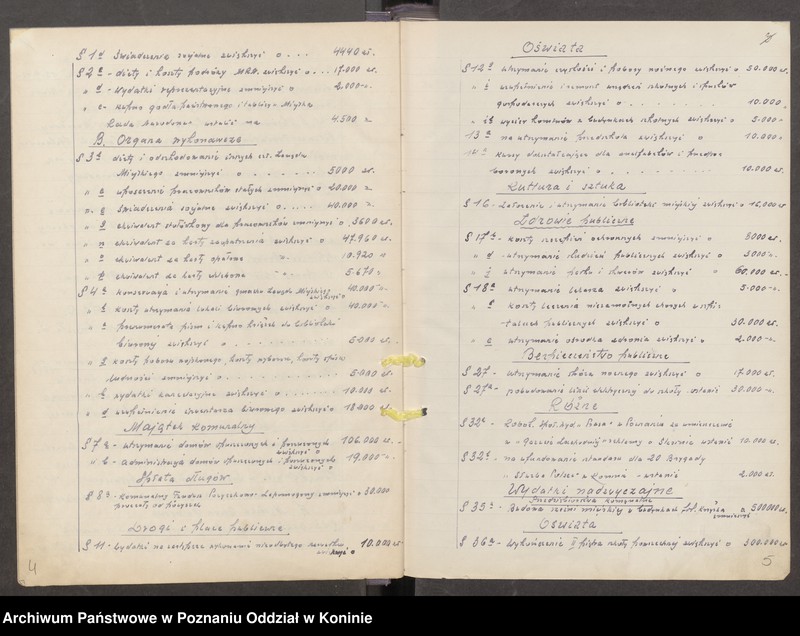 § 1 d świadczenia socjalne zwiększyć o . . . 4440 zł.
§ 2 a - diety i koszty podróży MRN. zwiększyć o . . . 17.000 zł.
" d - Wydatki reprezentacyjne zmniejszyć o 2.000 -"-
" e - kupno godła państwowego i tablicy - Miejska
Rada Narodowa - ustalić na 4.500 "
B. Organa wykonawcze
§ 3 a diety i odszkodowania
Miejskiego zmniejszyć o . . . . . . 5000 zł.
" a uposażenie pracowników stałych zmniejszyć o 20.000 "
" c świadczenia socjalne zwiększyć o . . . . 40.000 "
" d ekwiwalent stołówkowy dla pracowników zmniejszyć o 3600 zł.
" n ekwiwalent za karty zaopatrzenia zwiększyć o 47.960 zł.
" o ekwiwalent za karty opałowe " 10.920 "
" p ekwiwalent za karty odzieżowe " 5.670 "
§ 4 a konserwacja i utrzymanie gmachu Zarządu Miejskiego zwiększyć o 40.000 -"-
" b koszty utrzymania lokali biurowych zwiększyć o 40.000 -"-
" c prenumerata pism i kupno książek do biblioteki
biurowej zwiększyć o 5.000 zł.
" g koszty poboru wojskowego, koszty wyborów, koszty spisu
ludności zmniejszyć o 5.000 zł.
" h wydatki kancelaryjne zwiększyć o 10.000 zł.
" d uzupełnienie inwentarza biurowego zwiększyć o 18.000 zł.
Majątek komunalny
§ 7 a - utrzymanie domów opuszczonych i porzuconych zwiększyć o 106.000 zł.
" b - administracja domów opuszczonych i porzuconych zwiększyć o 19.000 -"-
Spłata długów
§ 8 b - Komunalny Fundusz Pożyczkowo-Zapomogowy zmniejszyć o 30.000
procenty od pożyczek
Drogi i place publiczne
§ 11 - Wydatki na
zwiększyć o 10.000 zł
4
Oświata
§ 12 c utrzymanie czystości i pobory woźnego zwiększyć o 50.000 zł.
" f uzupełnienie i remont urządzeń szkolnych i sprzętów
gospodarczych zwiększyć o . . . . . . 10.000 "
" wycior kominów w budynkach szkolnych zwiększyć o 5.000 "
13 a na utrzymanie przedszkola zwiększyć o 10.000 "
14 a kursy dokształcające dla analfabetów i przedpo-
borowych zwiększyć o 10.000 zł.
Kultura i sztuka
§ 16 - Założenie i utrzymanie biblioteki miejskiej zwiększyć o 16,000 zł
Zdrowie publiczne
§ 17 a - koszty szczepień ochronnych zmniejszyć o 5000 zł.
" d - utrzymanie studzien publicznych zwiększyć o 3.000 "
" i utrzymanie parku i skwerów zwiększyć o 60.000 zł. -
§ 18 a utrzymanie lekarza zwiększyć o 5.000 -"-
" koszty leczenia niezamożnych chorych w szpi-
talach publicznych zwiększyć o 30.000 zł.
" e utrzymanie ośrodka zdrowia zwiększyć o 2.000 -"-
Bezpieczeństwo publiczne
§ 27 - utrzymanie stróża nocnego zwiększyć o 17.000 zł.
§ 27 a - pobudowanie linii elektrycznej do szkoły ustalić 30.000 -"-
Różne
§ 32 c - Zobow. Społ. Wyd. "Prasa" w Poznaniu za umieszczenie
w ustalić 10.000 zł.
§ 32 d - na ufundowanie sztandaru dla 20 Brygady
"Służba Polsce" w Koninie - ustalić 2.000 zł.
Wydatki nadzwyczajne
Przedsiębiorstwa komunalne
§ 35 a - Budowa rzeźni miejskiej o 500000 zł.
zmniejszyć
Oświata
§ 36 a - Wykończenie II piętra szkoły powszechnej zwiększyć o 300.000 zł
5
Archiwum Państwowe w Poznaniu Oddział w Koninie